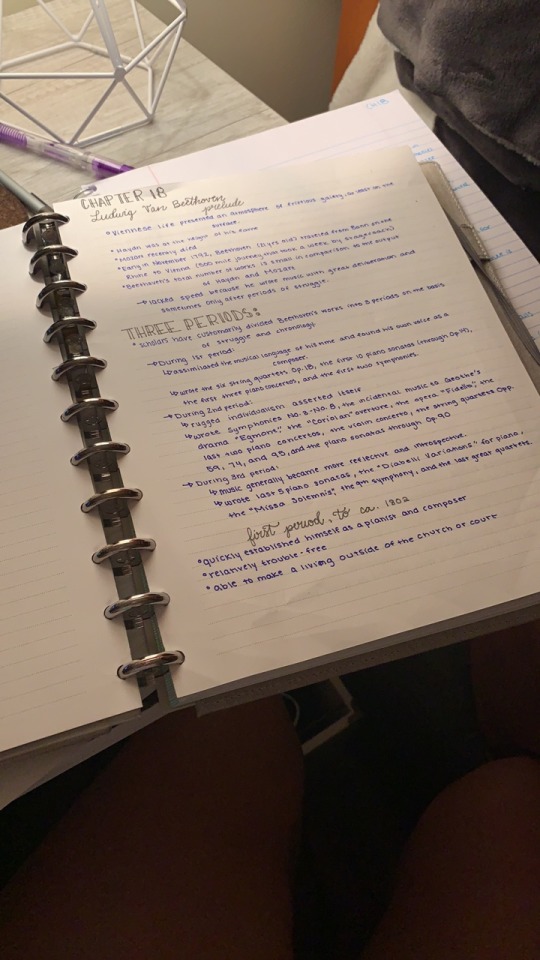 CHAPTER 18
Ludwig Van Beethoven
prelude
• Viennese life presented an atmosphere of frivolous gaiety, at least on the
surface.
• Haydn was at the height of his fame
• Mozart recently died
• Early in November 1792, Beethoven (21 yrs old) traveled from Bonn on the
Rhine to Vienna (500 mile journey that took a week by stagecoach)
• Beethoven's total number of works is small in comparison to the output
of Haydn and Mozart
↳ lacked speed because he wrote music with great deliberation and
sometimes only after periods of struggle.
THREE PERIODS:
• scholars have customarily divided Beethoven's works into 3 periods on the basis
of struggle and chronology
→ During 1st period:
↳ assimilated the musical language of his time and found his own voice as a
composer.
↳ wrote the six string quartets Op. 18, the first 10 piano sonatas (through Op. 14),
the first three piano concertos, and the first two symphonies.
→ During 2nd period:
↳ rugged individualism asserted itself
↳ wrote Symphonies No. 3-No. 8, the incidental music to Goethe's
drama "Egmont", the "Coriolan" overture, the opera "Fidelio", the
last two piano concertos, the violin concerto, the string quartets Opp.
59, 74, and 95, and the piano sonatas through Op. 90
→ During 3rd period:
↳ music generally became more reflective and introspective.
↳ wrote last 5 piano sonatas, the "Diabelli Variations" for piano,
the "Missa Solemnis", the 9th symphony, and the last great quartets
first period, to ca. 1802
• quickly established himself as a pianist and composer
• relatively trouble-free
• able to make a living outside of the church or court